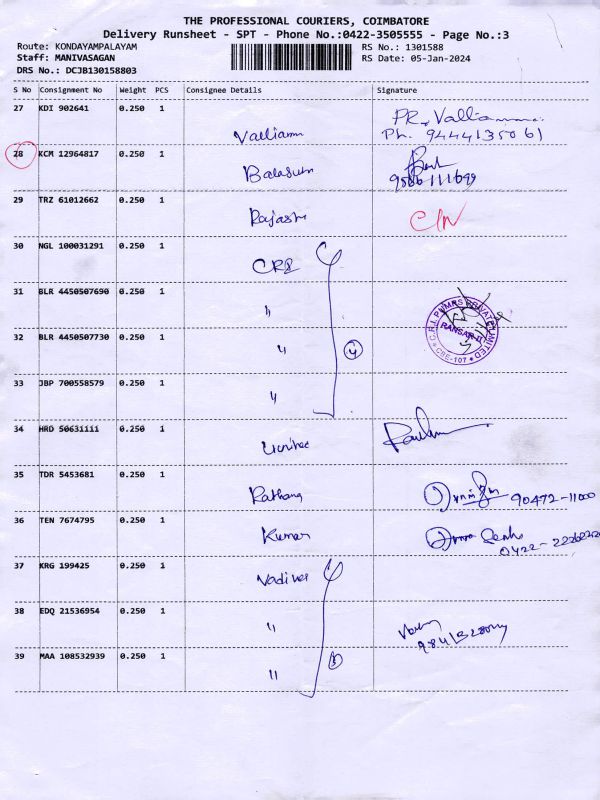 THE PROFESSIONAL COURIERS, COIMBATORE
Delivery Runsheet - SPT - Phone No.:0422-3505555 - Page No.:3
Route: KONDAYAMPALAYAM
Staff: MANIVASAGAN
DRS No.: DCJB130158803
RS No.: 1301588
RS Date: 05-Jan-2024
S No Consignment No Weight PCS Consignee Details Signature
27 KDI 902641 0.250 1
Valliamm PR. Valliamma.
Ph. 9444135061
28 KCM 12964817 0.250 1
Balasum
29 TRZ 61012662 0.250 1
Rajash C/N
30 NGL 100031291 0.250 1
CRI
31 BLR 4450507690 0.250 1
"
32 BLR 4450507730 0.250 1
" 4
C.R.I. PUMPS PRIVATE LIMITED
CBE-107
33 JBP 700558579 0.250 1
"
34 HRD 50631111 0.250 1
35 TDR 5453681 0.250 1
Rathna 90472-11000
36 TEN 7674795 0.250 1
Kumar
0422-
37 KRG 199425 0.250 1
Vadivel
38 EDQ 21536954 0.250 1
"
39 MAA 108532939 0.250 1
" 3